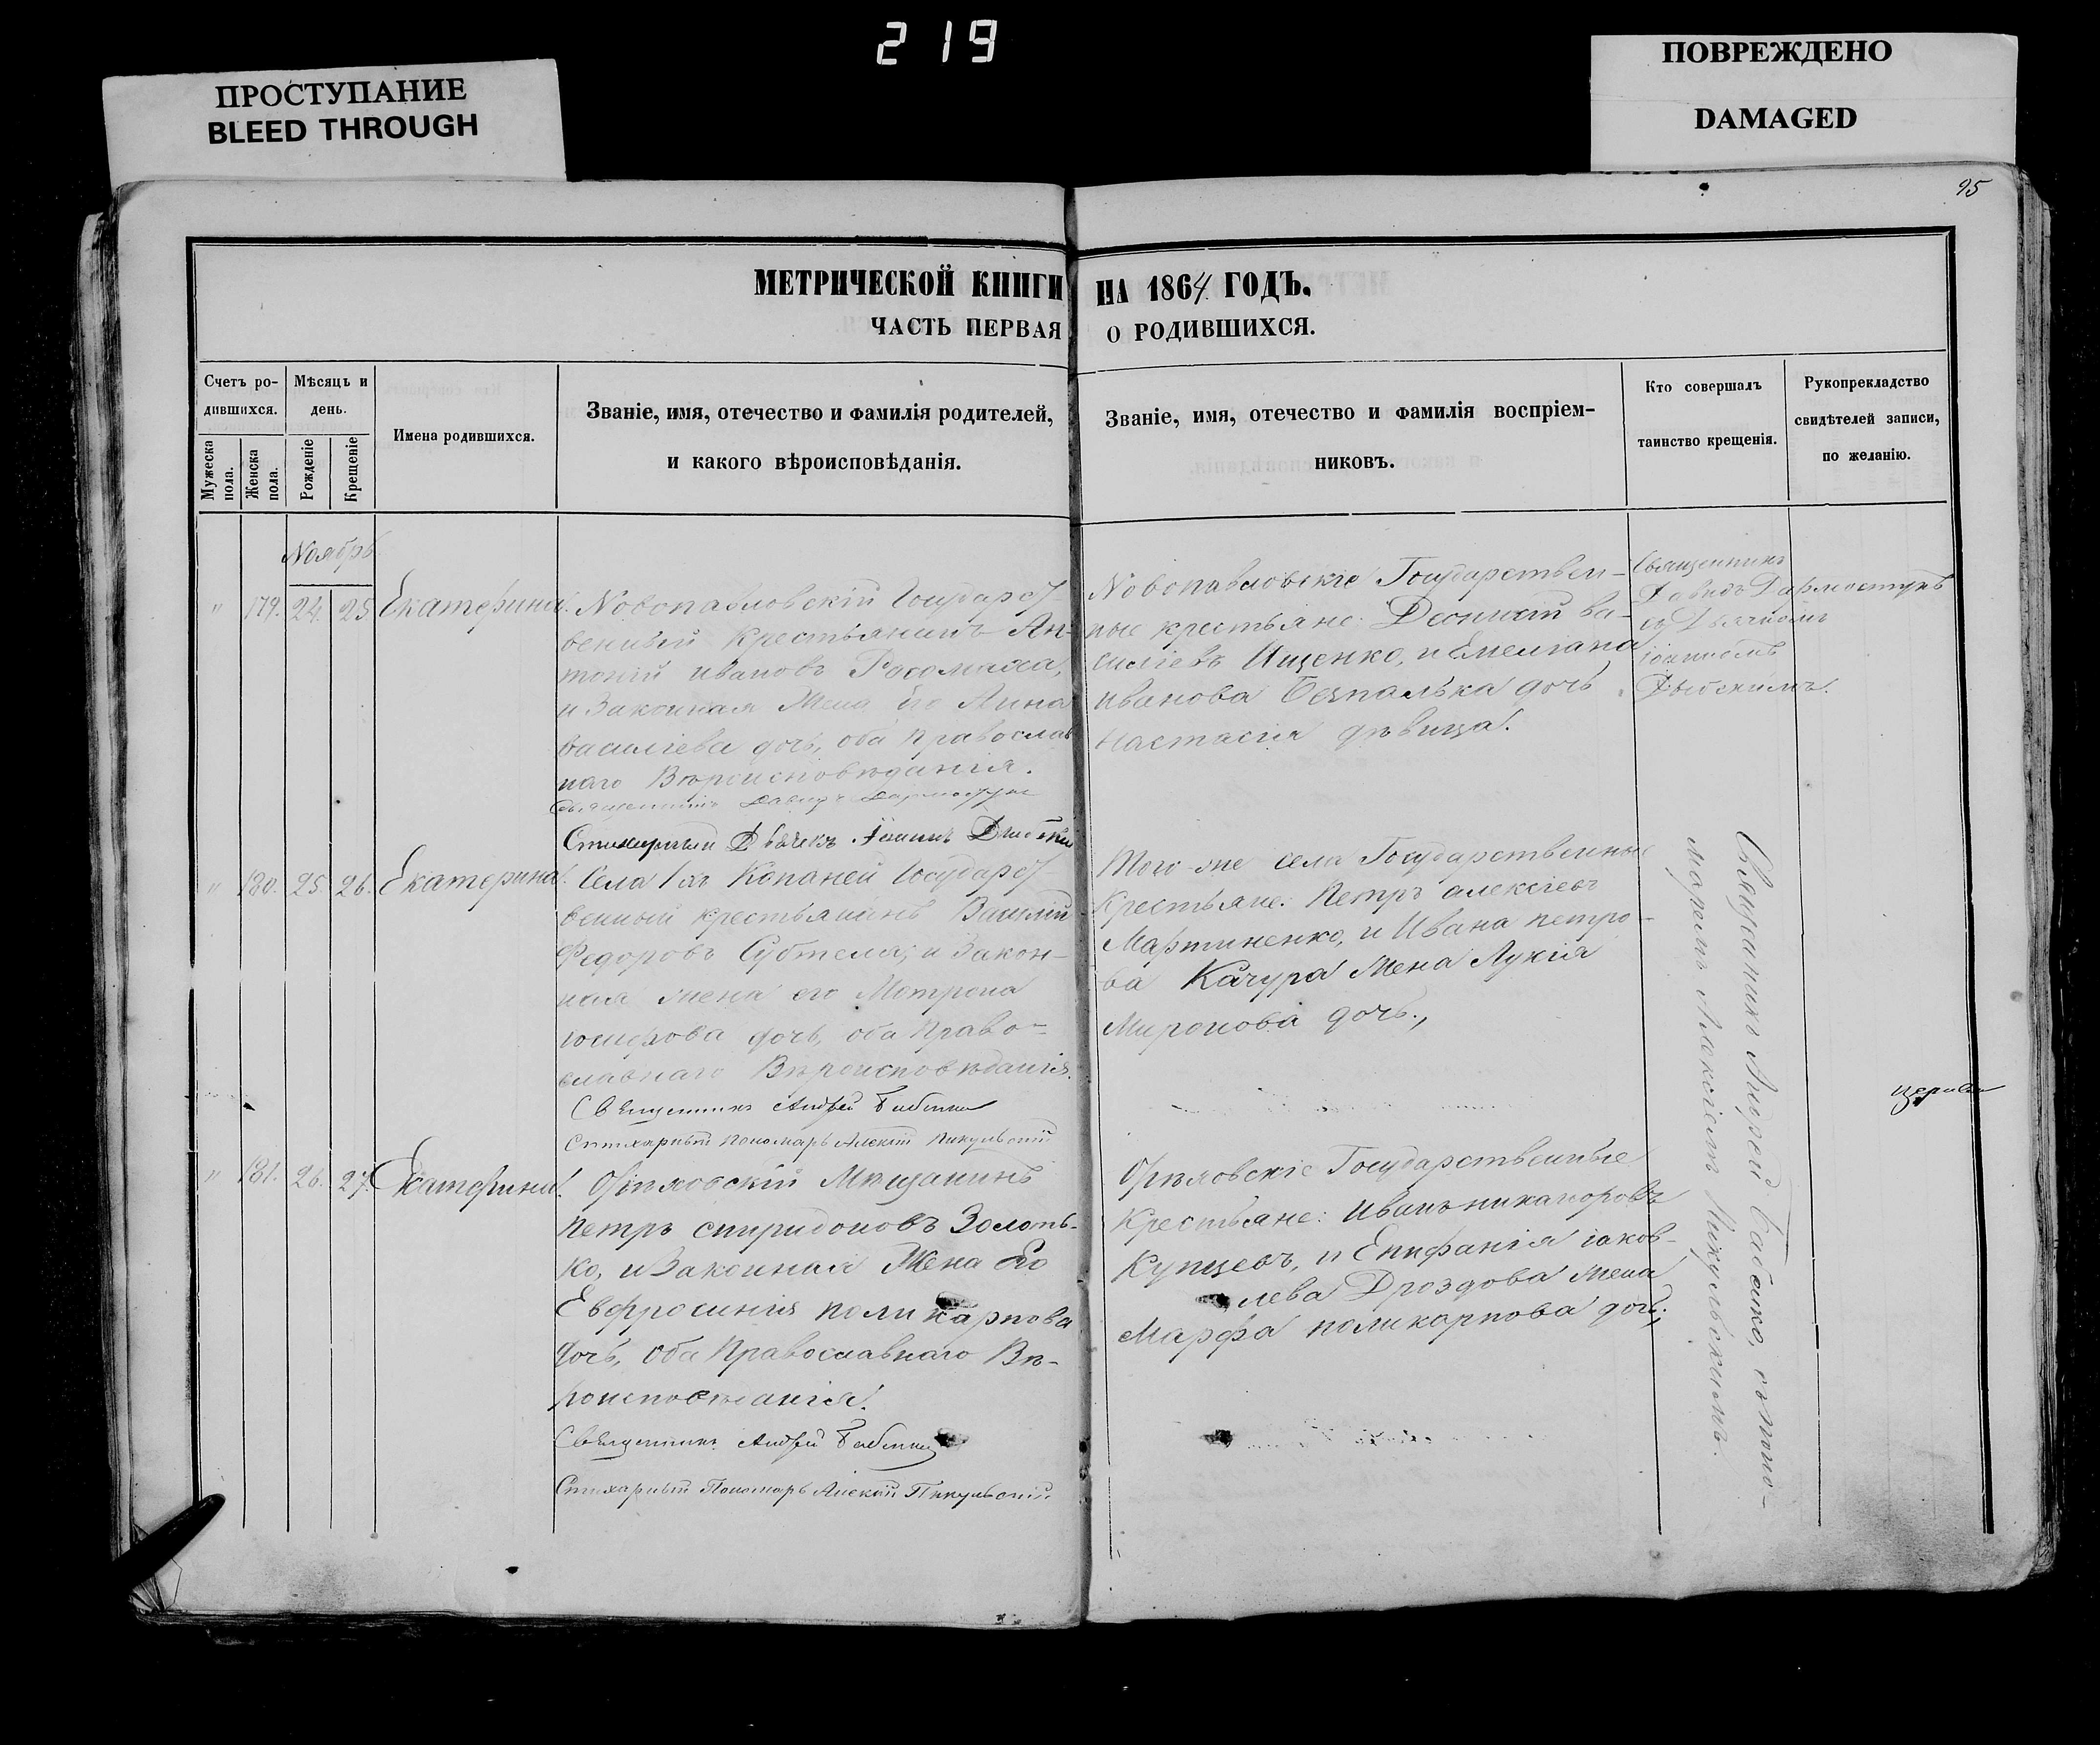 219
ПРОСТУПАНИЕ
BLEED THROUGH
ПОВРЕЖДЕНО
DAMAGED
95
МЕТРИЧЕСКОЙ КНИГИ НА 1864 ГОДЪ.
ЧАСТЬ ПЕРВАЯ О РОДИВШИХСЯ.
Счетъ ро-
дившихся.
Мужеска пола.
Женска пола.
Мѣсяцъ и
день.
Рожденіе
Крещеніе
Имена родившихся.
Званіе, имя, отечество и фамилія родителей,
и какого вѣроисповѣданія.
Званіе, имя, отечество и фамилія воспріем-
никовъ.
Кто совершалъ
таинство крещенія.
Рукоприкладство
свидѣтелей записи,
по желанію.
Ноябрь
" 179. 24. 25 Екатерина.
Новопавловскій Государст-
венный крестьянинъ Ан-
тоній Ивановъ Росомаха,
и Законная Жена его Анна
Василіева дочь, оба Православ
наго Вѣроисповѣданія.
Священникъ Давидъ
Стихарный Дьячекъ Іоаннъ
Новопавловскіе Государствен-
ные крестьяне: Ва-
силіевъ Ищенко, и Емеліана
Иванова Безпалька дочь
Настасія дѣвица.
Священникъ
Давидъ
съ Дьячкомъ
Іоанномъ
" 180. 25 26. Екатерина.
Села Копаней Государст-
венный крестьянинъ Василій
Федоровъ Субтеля, и Закон-
ная жена его Матрона
Іосифова дочь, оба Право-
славнаго Вѣроисповѣданія.
Священникъ Андрей Бабенко
Стихарный Пономарь Алексій Пикульскій
Того-же села Государственные
Крестьяне: Петръ Алексіевъ
Мартиненко, и Ивана Петро-
ва Качура Жена Лукія
Миронова дочь.,
Священникъ Андрей Бабенко, съ поно-
маремъ Алексіемъ Пикульскимъ.
церкви
" 181. 26. 27. Екатерина.
Орѣховскій Мѣщанинъ
Петръ Спиридоновъ Золоть-
ко, и Законная Жена Его
Евфросинія Поликарпова
дочь, оба Православнаго Вѣ-
Священникъ Андрей Бабенко
Стихарный Пономарь Алексій Пикульскій
Орѣховскіе Государственные
Крестьяне: Иванъ Никаноровъ
Купцевъ, и Епифанія Іаков-
лева Дроздова жена
Марфа Поликарпова дочь,